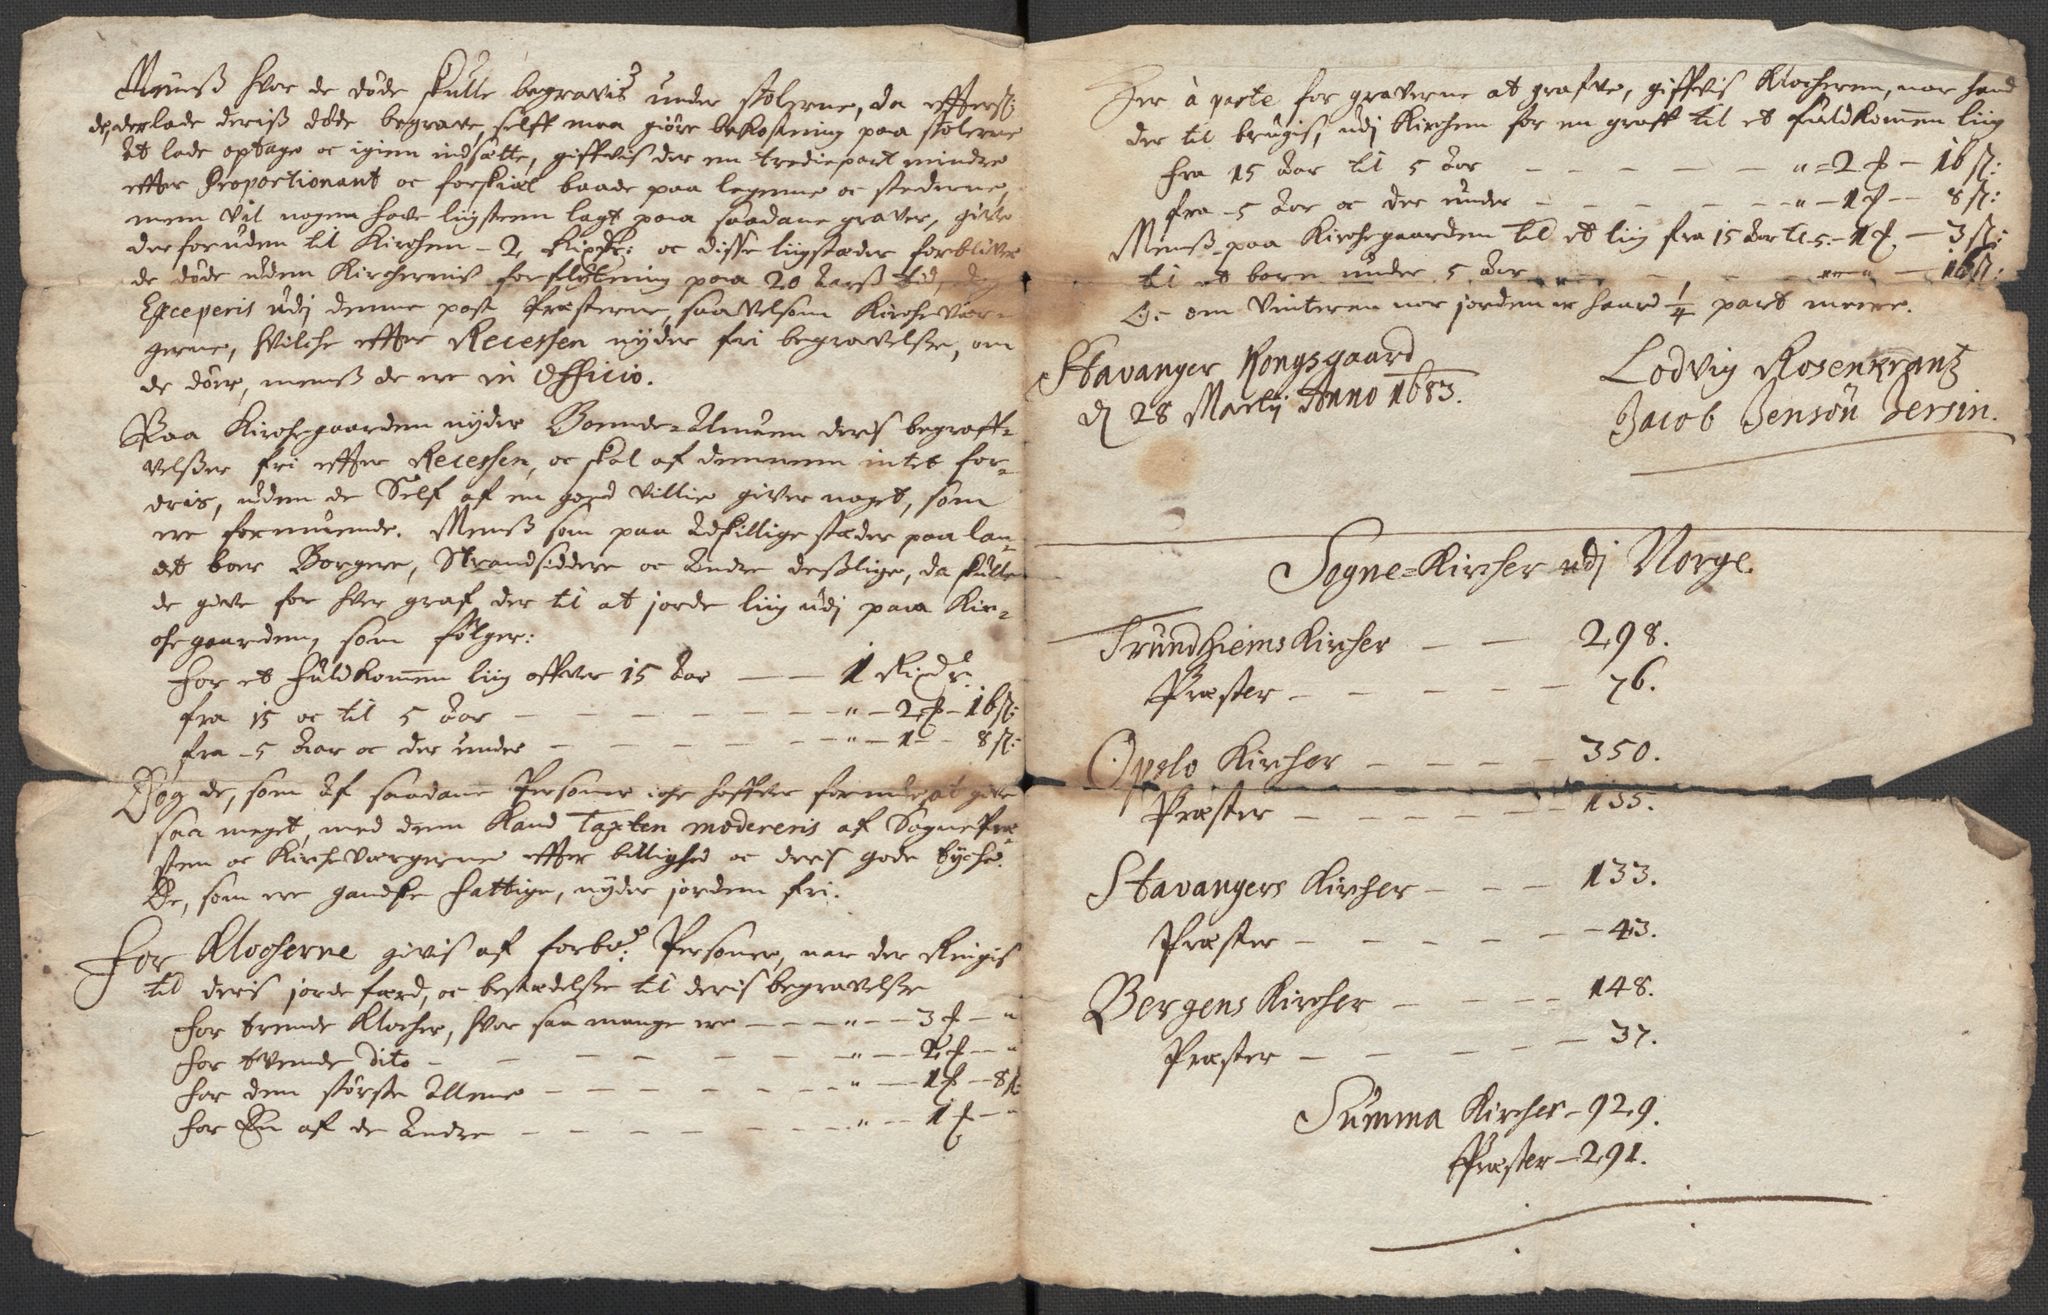 Menß hvor de døde skulle begravis under stolerne, da effters:
de, der lade deriß døde begrave, selff maa giøre bekostning paa stolerne
at lade optage oc igien indsætte, giffvis der en trediepart mindre
effter Proportionant oc forskiæl baade paa legeme oc stederne,
men vil nogen have liigsteen lagt paa saadane graver, give
der foruden til Kirchen - 2 Rixdr: oc disse liigstæder forbliver
de døde uden Kirchernis forflytning paa 20 Aarß tid,
Exceperis udj denne post Præsterne, saavelsom Kircheværgerne,
gerne, hvilche effter Recessen nyder fri begravelsse, om
de døer, menß de ere in Officio.
Paa Kirchegaarden nyder Bonde-Almuen deris begraff-
velsser fri effter Recessen, oc skal af dennem intet for-
dris, uden de Self af en goed villie giver noget, som
ere formuende. Menß som paa adskillige stæder paa lan-
det boer Borgere, Strandsiddere oc Andre deßlige, da skulle
de give for hver graf der til at jorde liig udj paa Kir-
chegaarden, som følger:
For et fuldkommen liig offver 15 Aar — — 1 Rixdr.
fra 15 oc til 5 Aar — — — " — 2 ꝑ — 16 s:
fra 5 Aar oc der under — — — " — 1 — 8 s:
Dog de, som Af saadane Personer iche haffver formue at give
saa meget, med dem kand Taxten modereris af SognePræ-
sten oc Kircheværgerne effter billighed oc deris gode tyche.
De, som ere gandske fattige, nyder jorden fri.
For Klocherne givis af forbe: Personer, nar der Ringis
til deris jordefærd, oc bestædelsse til deris begravelsse
For trende Klocher, hvor saa mange ere — — " — 3 ꝑ — "
for tvende dito — — — " — 2 ꝑ — "
for den største Allene — — — " — 1 ꝑ — 8 s:
for En af de Andre — — — " — 1 ꝑ — "
Her à parte for graverne at grafve, giffvis Klocheren, nar hand
der til brugis, udj Kirchen for en graff til et fuldkommen liig
fra 15 Aar til 5 Aar — — — " — 2 ꝑ — 16 s:
fra 5 Aar oc der under — — — " — 1 ꝑ — 8 s:
Menß paa Kirchegaarden til et liig fra 15 Aar til 5 — 1 ꝑ — 3 s:
til et barn under 5 Aar — — — " — 16 s:
Oc om Vinteren nar jorden er haard 1/4 part meere.
Stavanger Kongsgaard
d 28 Martij Anno 1683.
Lodvig Rosenkrantz
Jacob Jensøn Jersin.
Sogne=Kircher udj Norge.
Trundhiems Kircher — — 298.
Præster — — — 76.
Opslo Kircher — — — 350.
Præster — — — 135.
Stavangers Kircher — — — 133.
Præster — — — 43.
Bergens Kircher — — — 148.
Præster — — — 37.
Summa Kircher — 929.
Præster — 291.